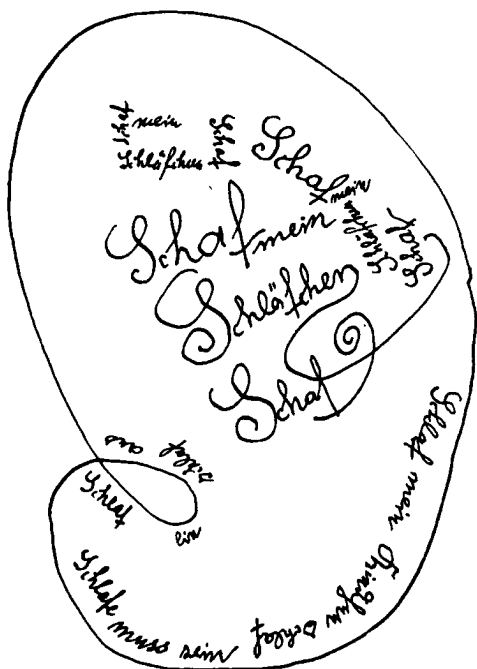 Schaf mein
Schläfchen Schaf
Schaf mein
Schläfchen
Schaf
Schaf mein
Schläfchen
Schaf
Schlaf mein Schlaf
Schlafe muss sein
Schlaf ein
Schlaf aus